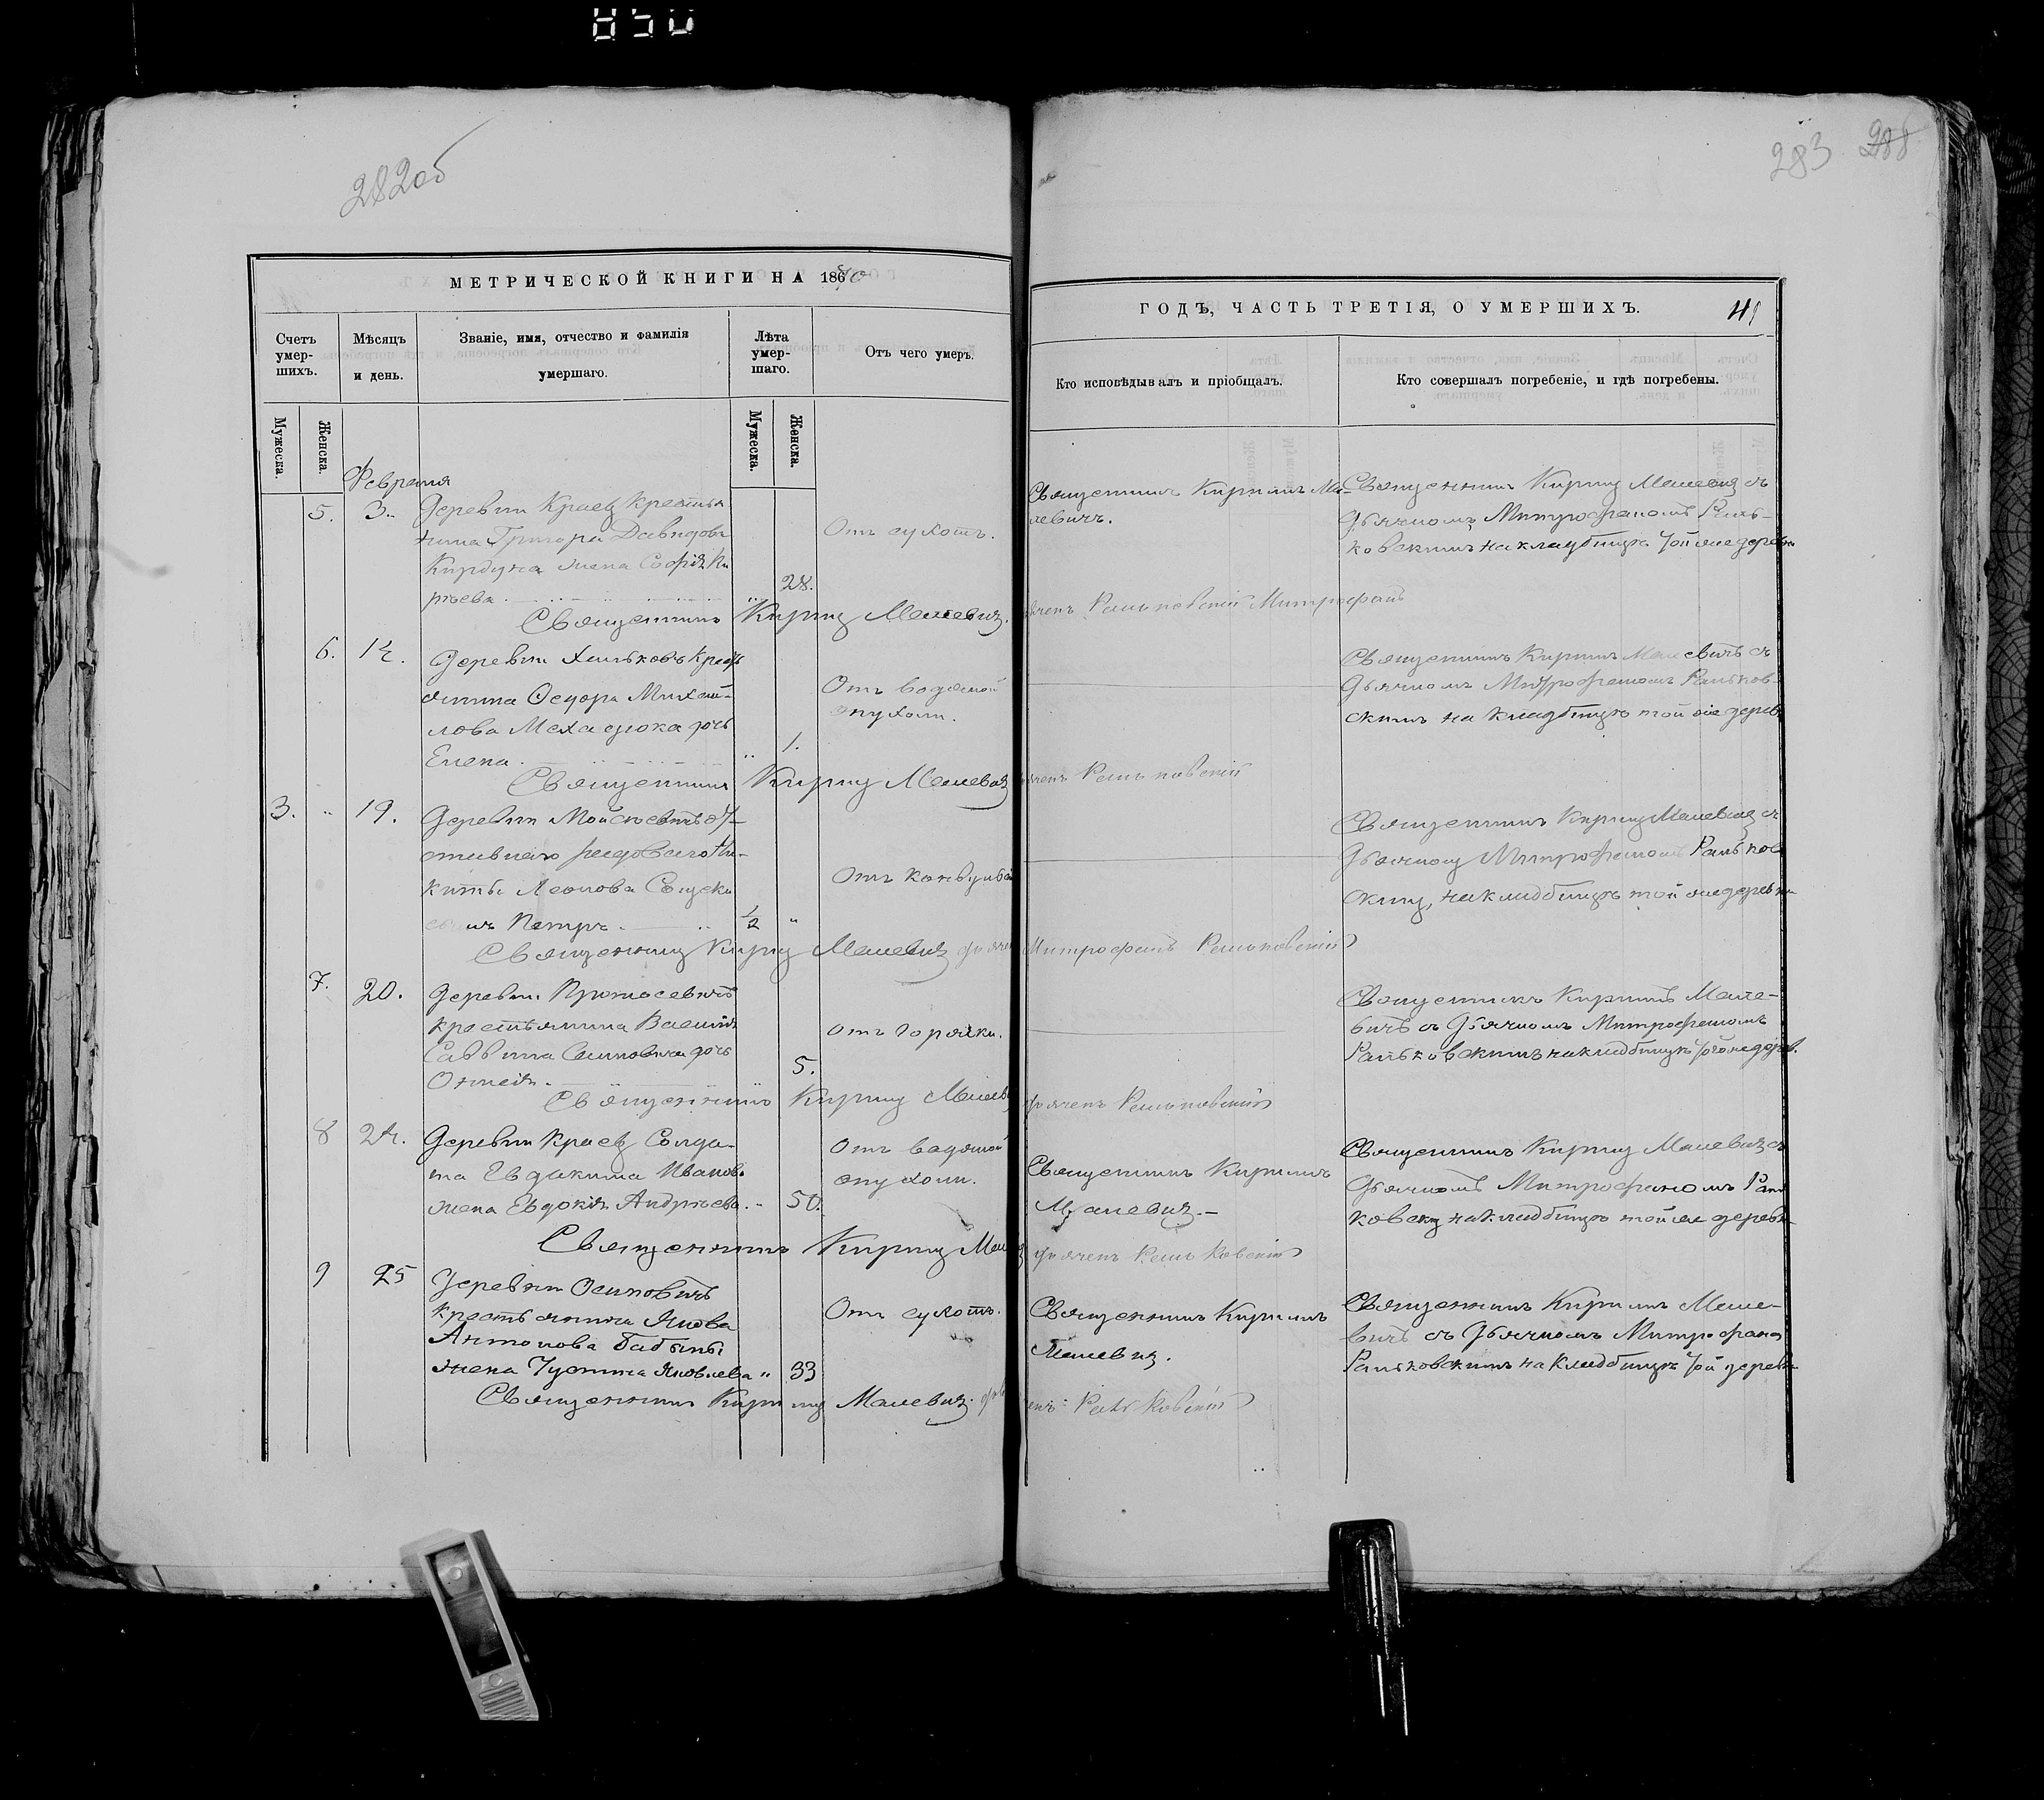 850
282об
283 288
МЕТРИЧЕСКОЙ КНИГИ НА 1870
ГОДЪ, ЧАСТЬ ТРЕТІЯ, О УМЕРШИХЪ. 41
Счетъ умер-шихъ.
Мѣсяцъ и день.
Званіе, имя, отчество и фамилія умершаго.
Лѣта умер-шаго.
Отъ чего умеръ.
Кто исповѣдывалъ и пріобщалъ.
Кто совершалъ погребеніе, и гдѣ погребены.
Мужеска.
Женска.
Мужеска.
Женска.
Февраля
5. 3. Деревни Краец Крестья
нина Григорія Давидова
жена Софія Ки
рѣева 28.
Отъ сухотъ.
Священникъ Кирилъ Ма-
левичъ.
Священникъ Кирилъ Малевичъ съ
Дьячкомъ Митрофаномъ Раль-
ковскимъ на кладбищѣ той же деревни
Священникъ Кирилъ Малевичъ. дьячекъ Ральковскій Митрофанъ
6. 12. Деревни Хильковъ Крест
янина Ѳедора Михай-
лова дочь
Елена 1.
Отъ водяной
опухоли.
Священникъ Кирилъ Малевичъ съ
Дьячкомъ Митрофаномъ Ральков-
скимъ на кладбищѣ той же дерев.
Священникъ Кирилъ Малевичъ дьячекъ Ральковскій
3. 19. Деревни Мойсѣевичъ от-
ставнаго рядоваго Ни-
киты Леонова
сынъ Петръ 1/2
Отъ конвульсій
Священникъ Кирилъ Малевичъ съ
Дьячкомъ Митрофаномъ Ральков
скимъ, на кладбищѣ той же деревни
Священникъ Кирилъ Малевичъ дьячекъ Митрофанъ Ральковскій
7. 20. Деревни Протасевичъ
крестьянина Василія
Саввина дочь
5.
Отъ горячки.
Священникъ Кирилъ Мале-
вичъ съ Дьячкомъ Митрофаномъ
Ральковскимъ на кладбищѣ той же дерев.
Священникъ Кирилъ Малевичъ дьячекъ Ральковскій
8 24. Деревни Краец Солда-
та Евдокима Иванова
жена Евдокія Андрѣева 50.
Отъ водяной
опухоли.
Священникъ Кирилъ
Малевичъ.
Священникъ Кирилъ Малевичъ съ
Дьячкомъ Митрофаномъ Раль
ковскимъ на кладбищѣ той же деревн
Священникъ Кирилъ Малевичъ дьячекъ Ральковскій
9 25 Деревни Осиповичъ
крестьянина Якова
Антонова Бабыны
жена Устина Яковлева 33
Отъ сухотъ.
Священникъ Кирилъ
Малевичъ.
Священникъ Кирилъ Мале-
вичъ съ Дьячкомъ Митрофано
Ральковскимъ на кладбищѣ той деревн
Священникъ Кирилъ Малевичъ. дьячекъ Ральковскій